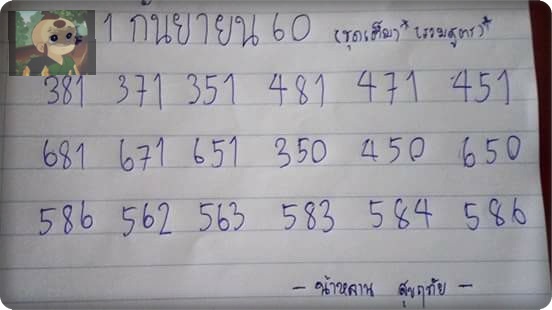 1 กันยายน 60 (ชุดเต็มา* รวมสูตร)*
381 371 351 481 471 451
681 671 651 350 450 650
586 562 563 583 584 586
- น้าหลาน สุขฤทัย -